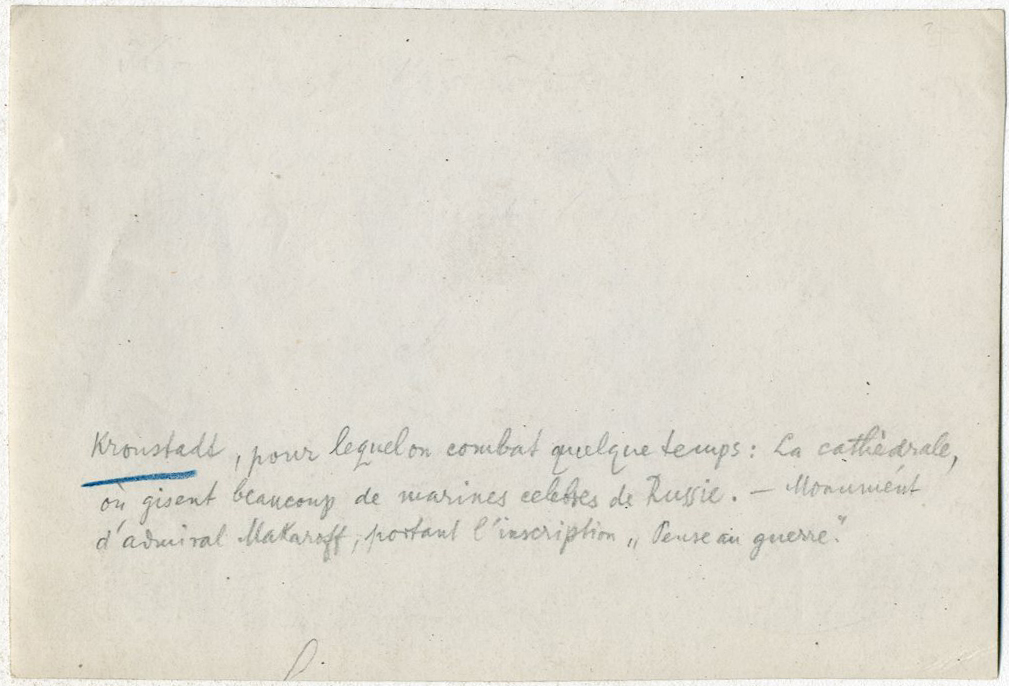 Kronstadt, pour lequel on combat quelque temps: La cathèdrale,
où gisent beaucoup de marines celebres de Russie. — Monument
d'admiral Makaroff, portant l'inscription „Pense au guerre."